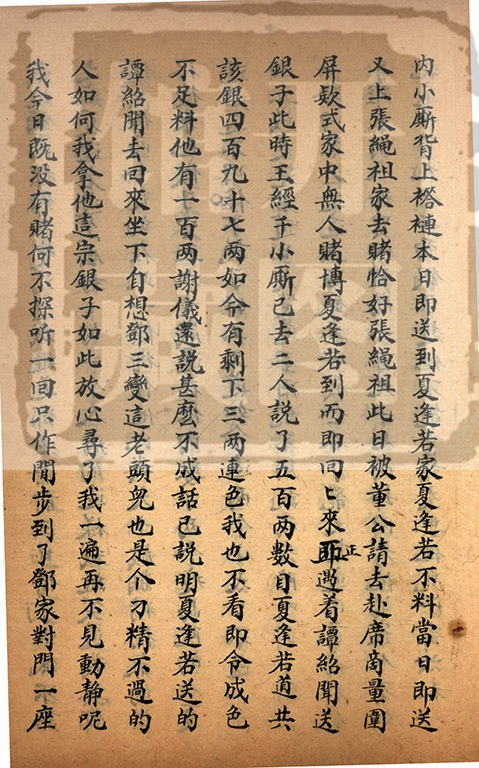 内小廝背上褡褳本日即送到夏逢若家夏逢若不料當日即送
又上張繩祖家去賭恰好張繩祖此日被董公請去赴席商量圍
屏欵式家中無人賭博夏逢若到而即回〻來正遇着譚紹聞送
銀子此時王經千小廝已去二人説了五百两數目夏逢若道共
該銀四百九十七两如今有剩下三两連色我也不看即令成色
不足料他有一百两謝儀還説甚麽不成話已説明夏逢若送的
譚紹聞去回來坐下自想鄧三變這老頭兒也是个刁精不過的
人如何我拿他這宗銀子如此放心尋了我一遍再不見動静呢
我今日既没有賭何不探听一回只作閒步到了鄧家對門一座